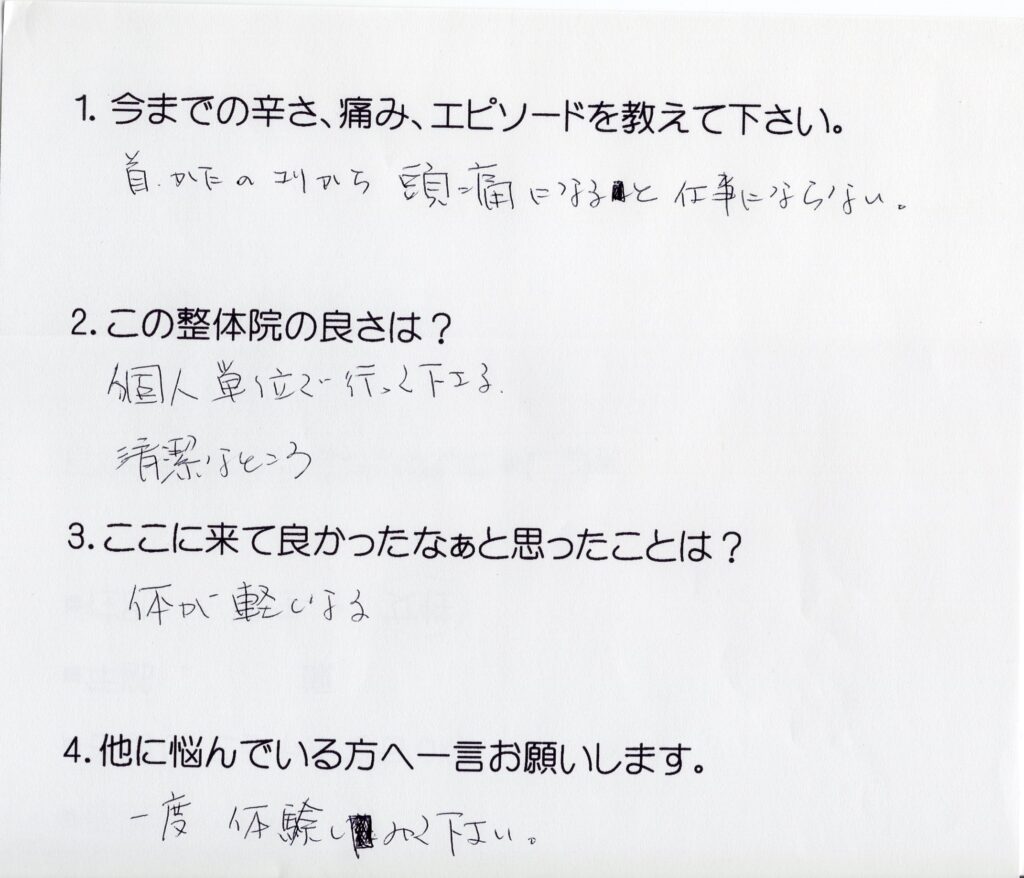 1. 今までの辛さ、痛み、エピソードを教えて下さい。
首・かたのコリから 頭痛になると 仕事にならない。
2. この整体院の良さは？
個人単位で行って下さる。
清潔なところ
3. ここに来て良かったなぁと思ったことは？
体が軽くなる
4. 他に悩んでいる方へ一言お願いします。
一度 体験してみて下さい。